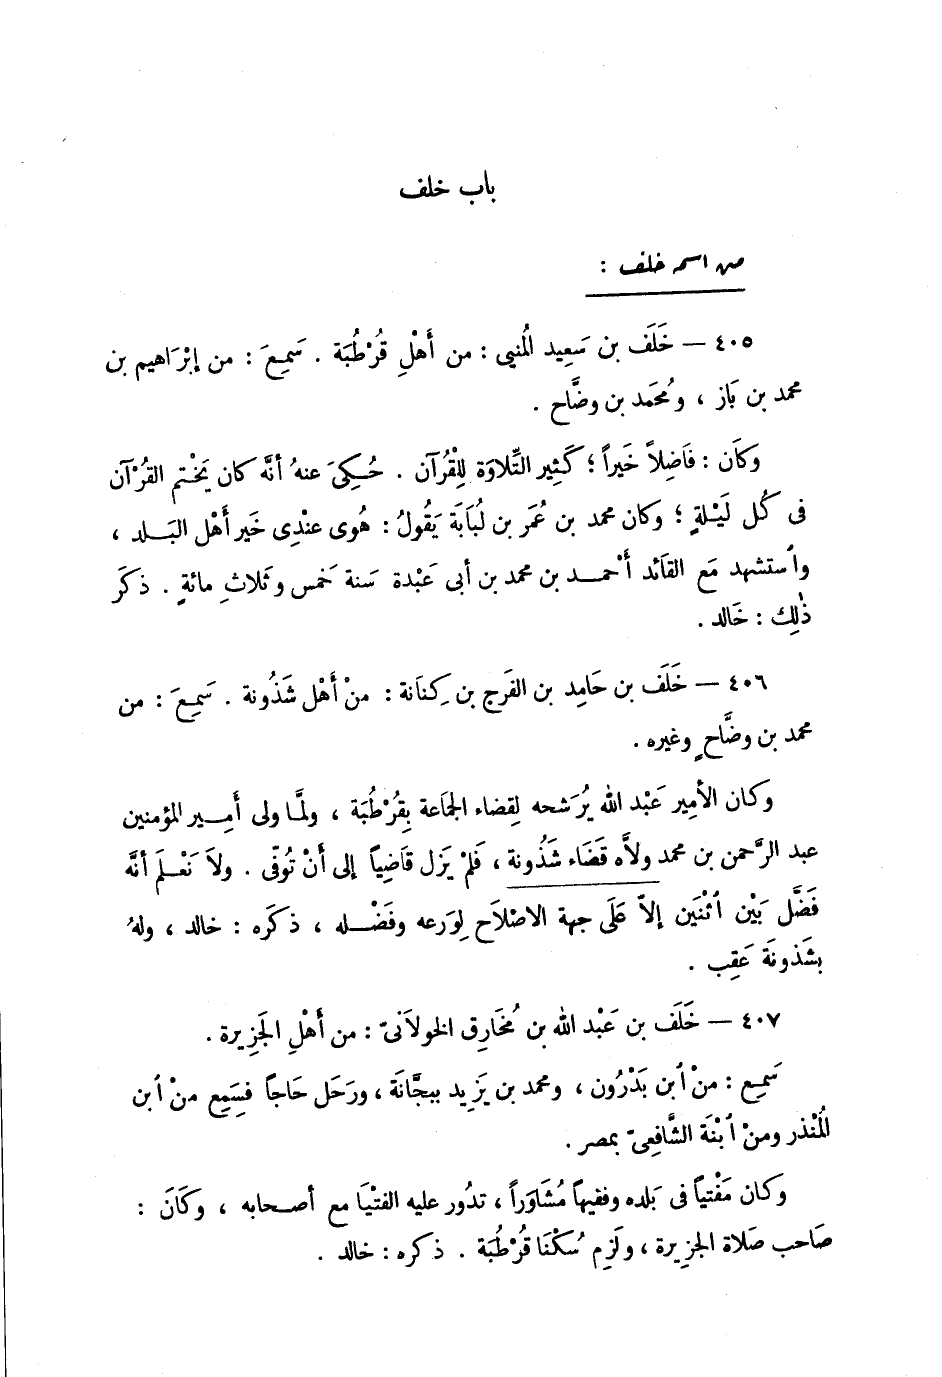 باب خلف
من اسمه خلف :
٤٠٥ — خَلَف بن سَعِيد المُنيى : من أَهْلِ قُرْطُبَة . سَمِعَ : من إبْرَاهيم بن
محمد بن بَاز ، ومُحَمَد بن وضَّاح .
وكَان : فَاضِلاً خَيراً ؛ كَثِير التِّلاوَة لِلْقُرآن . حُكِىَ عنهُ أنَّه كان يَخْتم القُرْآن
فى كُل لَيْلةٍ ؛ وكان محمد بن عُمَر بن لُبَابَة يَقُولُ : هُوى عنْدِى خَير أَهْل البَلد ،
وٱستشهد مَع القَائد أَحْمد بن محمد بن أبى عَبْدة سَنة خَمس وثَلاثِ مائةٍ . ذكَر
ذٰلِك : خَالد .
٤٠٦ — خَلَف بن حَامِد بن الفَرج بن كِنَانة : منْ أَهْل شَذُونة . سَمِعَ : من
محمد بن وضَّاحٍ وغيره .
وكان الأمِير عَبْد الله يُرَشحه لِقضاء الجمَاعة بِقُرْطُبَة ، ولمَّا ولى أَمِير المؤمنين
عبد الرَّحمن بن محمد ولاَّه قَضَاء شَذُونة ، فَلمْ يَزل قاَضِياً إلى أَنْ تُوفّى . ولاَ نَعْلَم أنَّه
فَضَّل بَيْن ٱثْنَين إلاّ عَلَى جهة الاصْلاَح لِورَعه وفَضْله ، ذكَره : خالد ، ولهُ
بشَذونَة عَقِب .
٤٠٧ — خَلَف بن عَبْد الله بن مُخَارِق الخولاَنىّ : من أَهْلِ الجَزِيرة .
سَمِع : منْ ٱبن بَدْرُون ، ومحمد بن يَزِيد ببجَّانَة ، ورَحَل حَاجاً فسَمِع منْ ٱبن
المُنْذر ومنْ ٱبْنَة الشَّافِعىّ بمصر .
وكان مَفْتياً فى بَلده وفقيهاً مُشَاوَراً ، تدُور عليه الفتْيَا مع أصحابه ، وكَانَ :
صَاحب صَلاة الجزِيرة ، ولَزِم سُكْنَا قُرْطُبَة . ذكره : خالد .